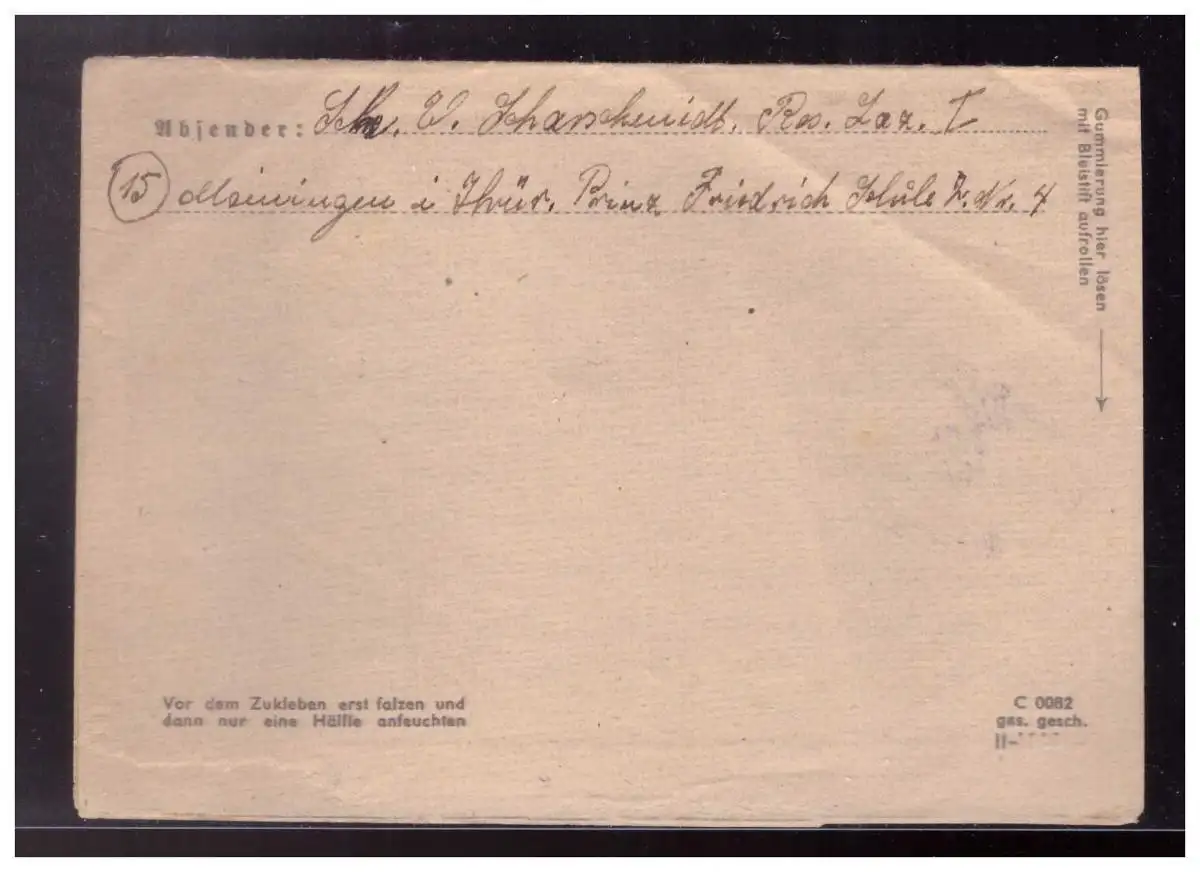 Absender: Schw. E. Scharschmidt. Res. Laz. I
(15) Meiningen i Thür. Prinz Friedrich Schule Z. Nr. 4
Gummierung hier lösen
mit Bleistift aufrollen
Vor dem Zukleben erst falzen und
dann nur eine Hälfte anfeuchten
C 0082
ges. gesch.
II-